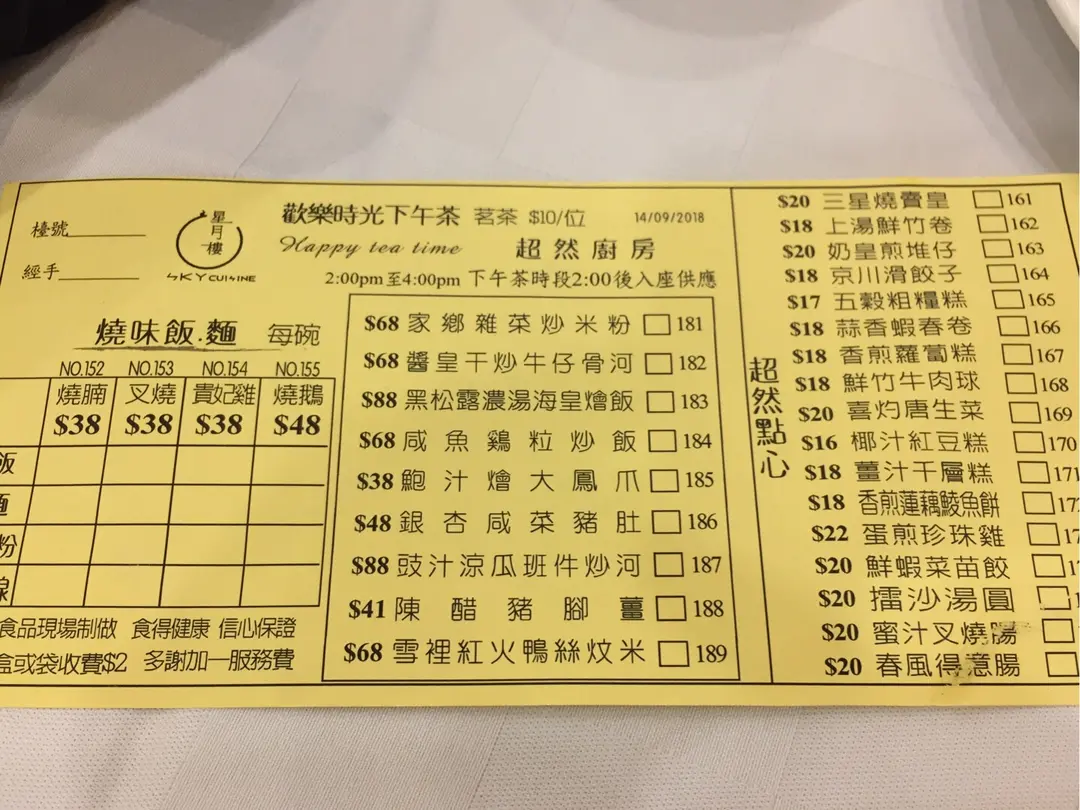 檯號
經手
星月樓
SKY CUISINE
歡樂時光下午茶 茗茶 $10/位 14/09/2018
Happy tea time 超然廚房
2:00pm至4:00pm 下午茶時段2:00後入座供應
燒味飯.麵 每碗
NO.152 NO.153 NO.154 NO.155
燒腩 叉燒 貴妃雞 燒鵝
$38 $38 $38 $48
飯
麵
粉
線
食品現場制做 食得健康 信心保證
盒或袋收費$2 多謝加一服務費
$68 家鄉雜菜炒米粉 181
$68 醬皇干炒牛仔骨河 182
$88 黑松露濃湯海皇燴飯 183
$68 咸魚鷄粒炒飯 184
$38 鮑汁燴大鳳爪 185
$48 銀杏咸菜豬肚 186
$88 豉汁涼瓜班件炒河 187
$41 陳醋豬腳薑 188
$68 雪裡紅火鴨絲炆米 189
超然點心
$20 三星燒賣皇 161
$18 上湯鮮竹卷 162
$20 奶皇煎堆仔 163
$18 京川滑餃子 164
$17 五穀粗糧糕 165
$18 蒜香蝦春卷 166
$18 香煎蘿蔔糕 167
$18 鮮竹牛肉球 168
$20 喜灼唐生菜 169
$16 椰汁紅豆糕 170
$18 薑汁千層糕 171
$18 香煎蓮藕鯪魚餅 17
$22 蛋煎珍珠雞 17
$20 鮮蝦菜苗餃 1
$20 擂沙湯圓
$20 蜜汁叉燒腸
$20 春風得意腸